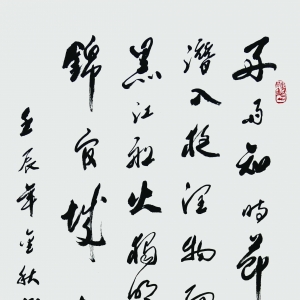 好雨知時節
潛入夜潤物細
黑江船火獨明
錦官城
壬辰年金秋